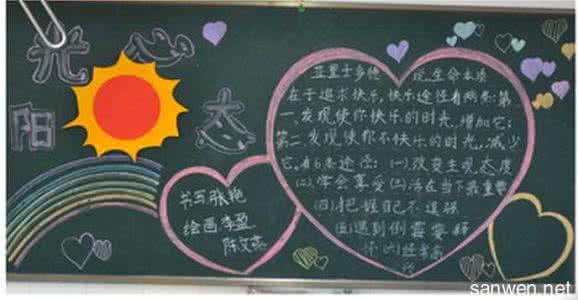 阳光心态
亚里士多德 说生命本质
在于追求快乐,快乐途径有两条:第
一、发现使你快乐的时光,增加它;
第二、发现使你不快乐的时光,减少
它。有6条途径:(一)改变主观态度
(二)学会享受(三)活在当下最重要
(四)把 自己不逼强
(五)遇到倒霉要
(六)经常
行
书写张艳
绘画李盈
陈文燕
sanwen.net